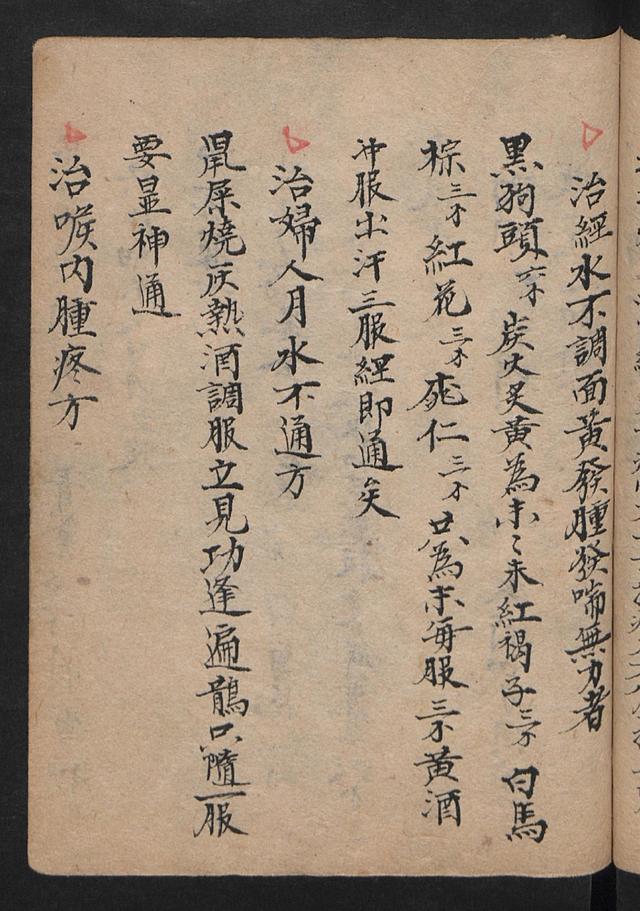 治經水不調面黃發腫發喘無力者
黑狗頭六个炭火炙黃為末〻朱紅褐子三个白馬
棕三个紅花三个桃仁三个共為末每服三个黃酒
冲服出汗三服經即通矣
治婦人月水不通方
鼠屎燒灰熱酒調服立見功逢遍鵲只隨一服
要显神通
治喉内腫疼方